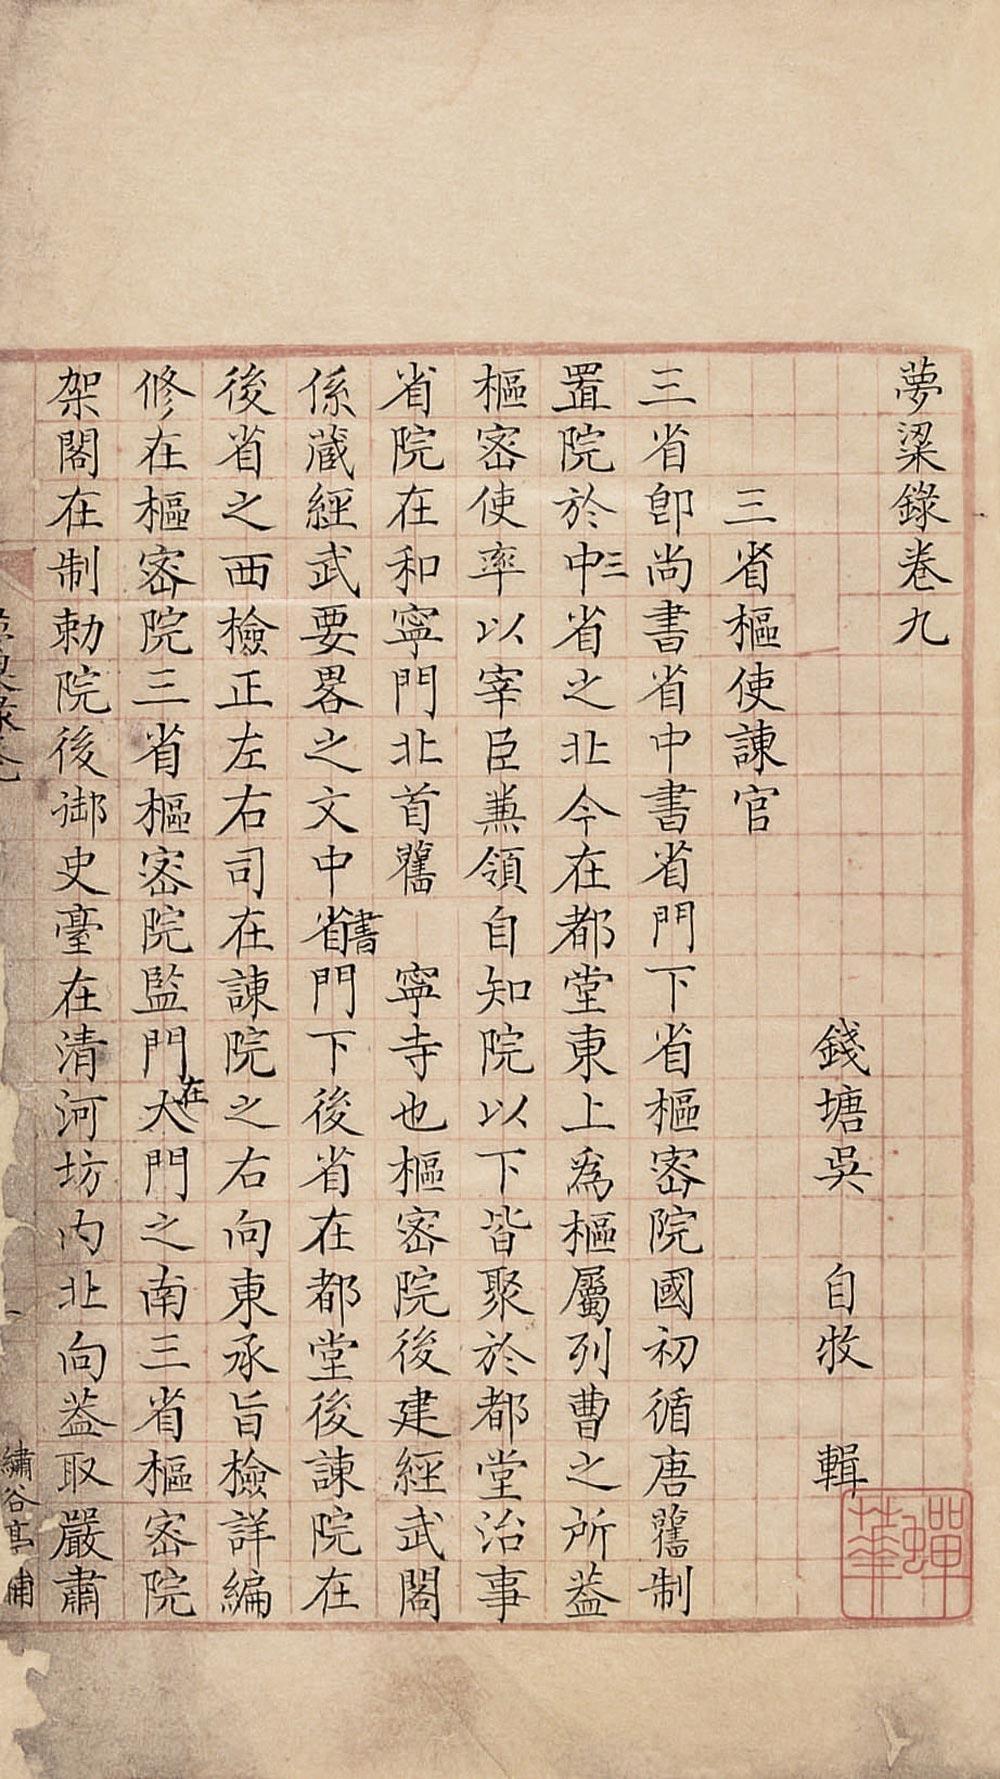 夢粱錄卷九
錢塘吳 自牧 輯
三省樞使諫官
三省卽尚書省中書省門下省樞密院國初循唐舊制
置院於中三省之北今在都堂東上爲樞屬列曹之所葢
樞密使率以宰臣兼領自知院以下皆聚於都堂治事
省院在和寧門北首舊 寧寺也樞密院後建經武閣
係蔵經武要畧之文中書省門下後省在都堂後諫院在
後省之西檢正左右司在諫院之右向東承旨檢詳編
修在樞密院三省樞密院監門在大門之南三省樞密院
架閣在制勅院後御史臺在清河坊内北向葢取嚴肅
繡谷亭
蟬華